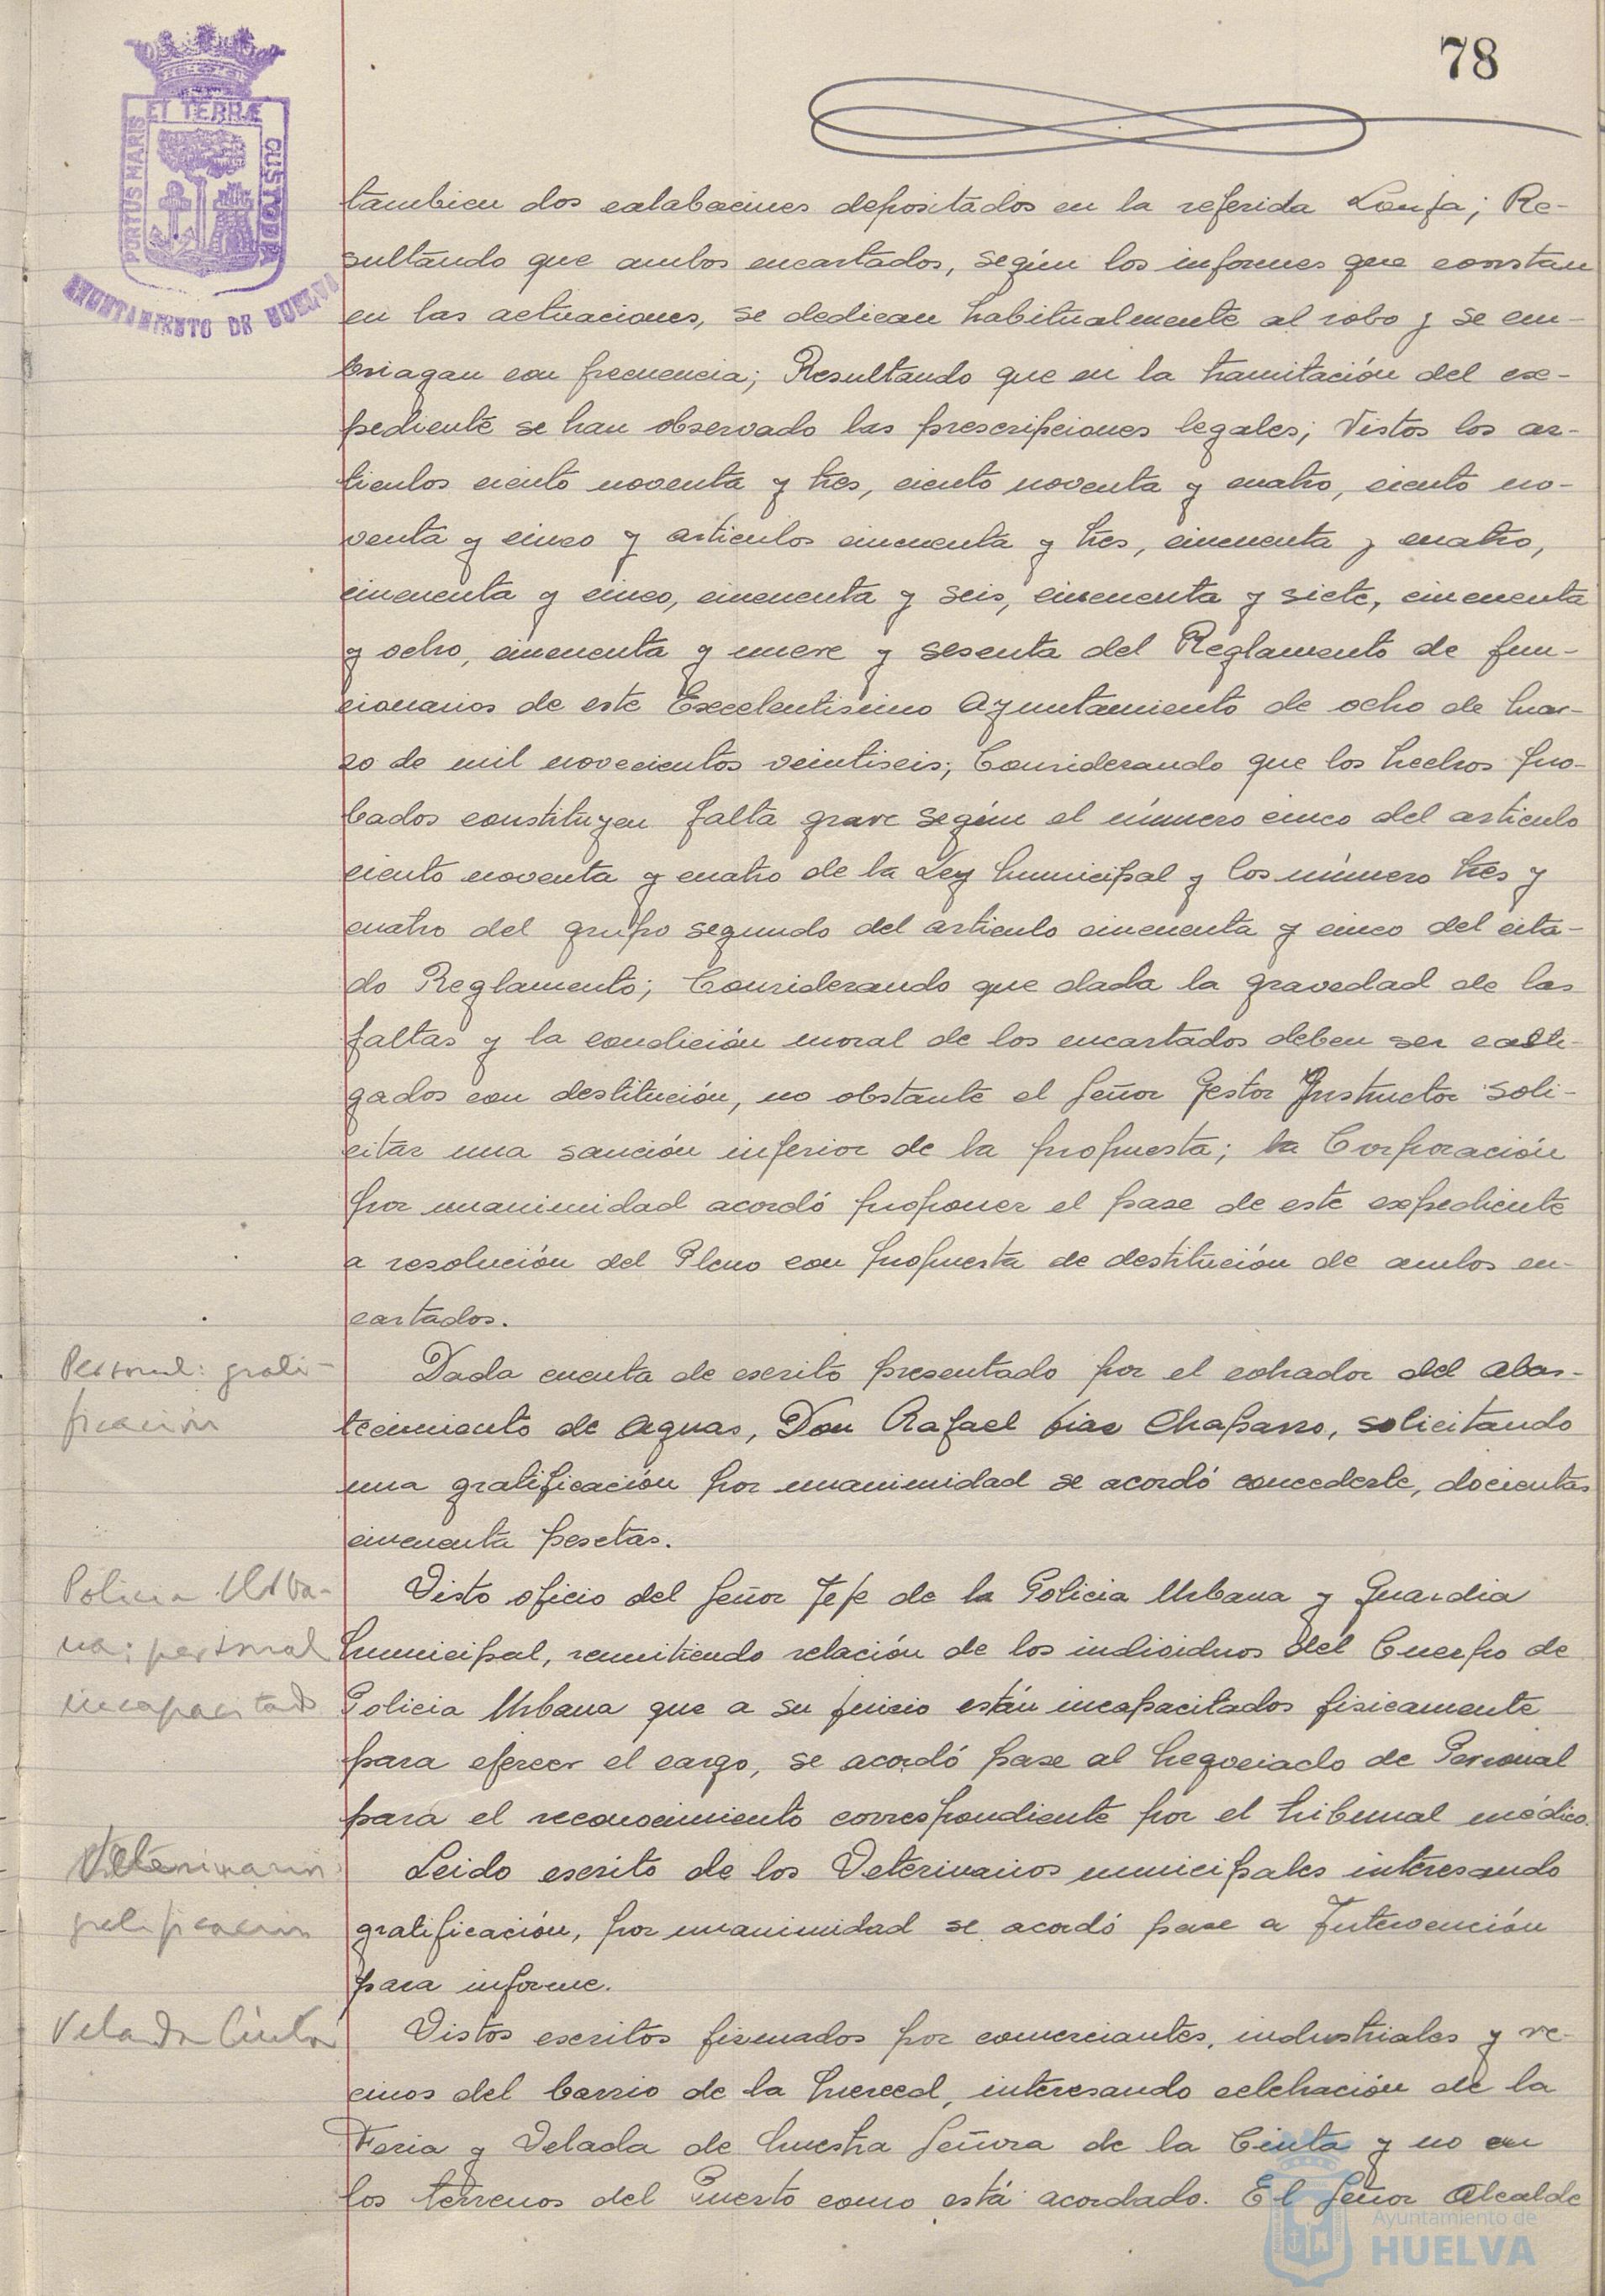 78
PORTUS MARIS ET TERRÆ CUSTODIA
AYUNTAMIENTO DE HUELVA
tambien dos calabacines depositados en la referida Lonja; Re-
sultando que ambos encartados, según los informes que constan
en las actuaciones, se dedican habitualmente al robo y se em-
briagan con frecuencia; Resultando que en la tramitación del ex-
pediente se han observado las prescripciones legales; Vistos los ar-
ticulos ciento noventa y tres, ciento noventa y cuatro, ciento no-
venta y cinco y articulos cincuenta y tres, cincuenta y cuatro,
cincuenta y cinco, cincuenta y seis, cincuenta y siete, cincuenta
y ocho, cincuenta y nueve y sesenta del Reglamento de fun-
cionarios de este Excelentisimo Ayuntamiento de ocho de Mar-
zo de mil novecientos veintiseis; Considerando que los hechos pro-
bados constituyen falta grave según el número cinco del articulo
ciento noventa y cuatro de la Ley Municipal y los número tres y
cuatro del grupo segundo del articulo cincuenta y cinco del cita-
do Reglamento; Considerando que dada la gravedad de las
faltas y la condición moral de los encartados deben ser casti-
gados con destitución, no obstante el Señor Gestor Instructor soli-
citar una sanción inferior de la propuesta; la Corporación
por unanimidad acordó proponer el pase de este expediente
a resolución del Pleno con propuesta de destitución de ambos en-
cartados.
Personal: grati-
ficación
Dada cuenta de escrito presentado por el cobrador del abas-
tecimiento de aguas, Don Rafael Diaz Chaparro, solicitando
una gratificación por unanimidad se acordó concederle, docientas
cincuenta pesetas.
Policia Urba-
na: personal
incapacitado
Visto oficio del Señor Jefe de la Policia Urbana y Guardia
Municipal, remitiendo relación de los individuos del Cuerpo de
Policia Urbana que a su juicio están incapacitados fisicamente
para ejercer el cargo, se acordó pase al Negociado de Personal
para el reconocimiento correspondiente por el tribunal médico.
Veterinarios
gratificación
Leido escrito de los Veterinarios municipales interesando
gratificación, por unanimidad se acordó pase a Intervención
para informe.
Velada Cinta
Vistos escritos firmados por comerciantes, industriales y ve-
cinos del barrio de la Merced, interesando celebración de la
Feria y Velada de Nuestra Señora de la Cinta y no en
los terrenos del Puerto como está acordado. El Señor Alcalde
Ayuntamiento de
HUELVA